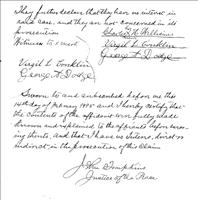 They further declare that they have no interest in
said case, and they are not concerned in its
prosecution
Witness to mark
Virgil L. Conklin
George A. Dodge
Virgil L. Conklin
George A. Dodge
Sworn to and subscribed before me this
14th day of February 1885 and I hereby certify that
the contents of the affidavit was fully made
known and explained to the affiants before swearing
thereto, and that I have no interest, direct or
indirect in the prosecution of this Claim
John Tompkins
Justice of the Peace